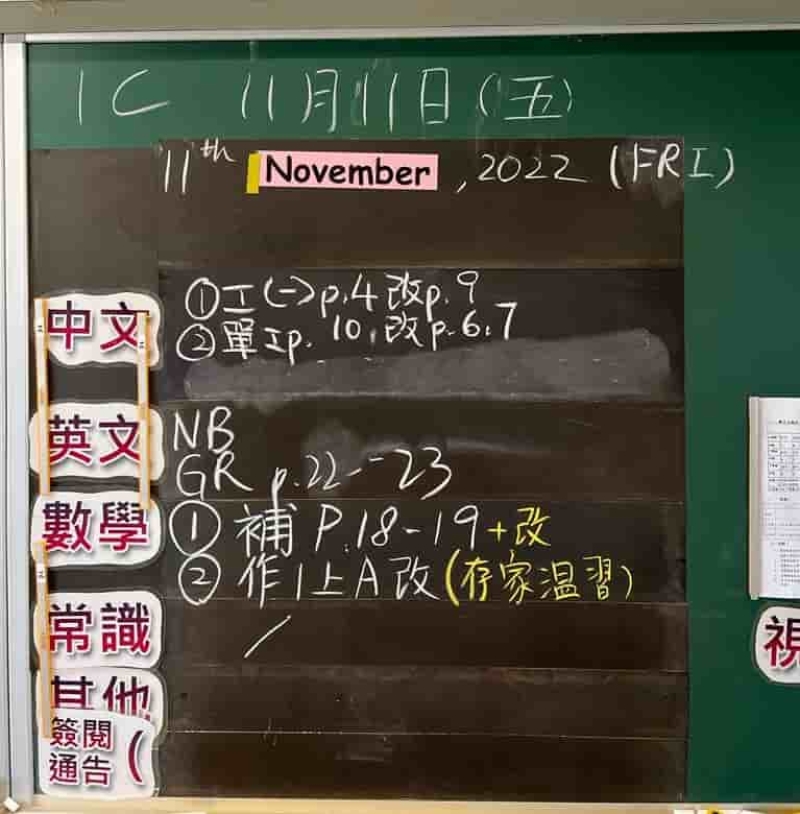 1C 11月11日(五)
11th November, 2022 (FRI)
中文
①工(一)p.4 改p.9
②單工p. 10,改p.6,7
英文
NB
GR p.22-23
數學
① 補 P.18-19+改
② 作1上A改(存家温習)
常識
其他
簽閱
通告 (
視